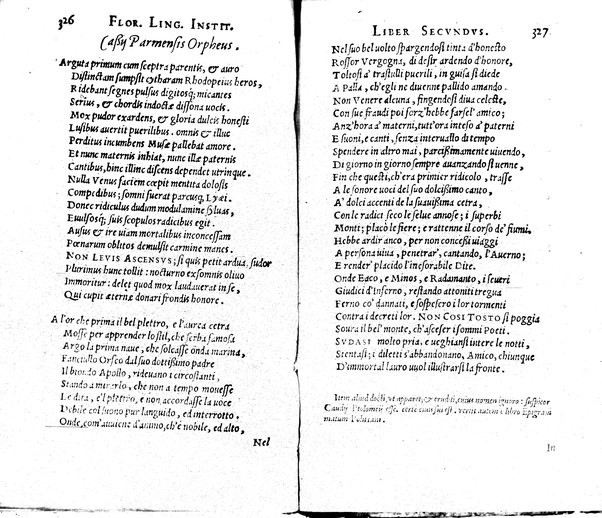 326 FLOR. LING. INSTIT.
Caßij Parmensis Orpheus.
Arguta primum cum sceptra parentis, & auro
Distinctam sumpsit cytharam Rhodopeius heros,
Ridebant segnes pulsus digitosq; micantes
Serius, & chordis indoctæ dissona uocis.
Mox pudor exardens, & gloria dulcis honesti
Lusibus auertit puerilibus. omnis & illuc
Perditus incumbens Musæ pallebat amore.
Et nunc maternis inhiat, nunc illa paternis
Cantibus, hinc illinc discens dependet utrinque.
Nulla Venus faciem cœpit mentita dolosis
Compedibus; somni fuerat parcusq, Lyæi.
Donec ridiculus dudum modulamine syluas,
Euulsosq; suis scopulos radicibus egit.
Ausus & ire uiam mortalibus inconcessam
Pœnarum oblitos demulsit carmine manes.
NON LEVIS ASCENSVS; si quis petit ardua. sudor
Plurimus hunc tollit: nocturno exsomnis oliuo
Immoritur: delet quod mox laudauerat in se,
Qui cupit æternæ donari frondis honore.
A l'or che prima il bel plettro, e l'aurea cetra
Mosse per apprender lo stil, che serba famosa
Argo la prima naue, che solcasse onda marina,
Fanciullo Orfeo dal suo dottissimo padre
Il biondo Apollo, rideuano i circostanti,
Stando a mirarlo, che non a tempo mouesse
Le dita, e'l plettro, e non accordasse la uoce
Debile col suono pur languido, ed interrotto.
Onde, com'auuiene d'animo, ch'è nobile, ed alto,
Nel
LIBER SECVNDVS. 327
Nel suo bel uolto spargendosi tinta d'honesto
Rossor Vergogna, di desir ardendo d'honore,
Toltosi a' trastulli puerili, in guisa si diede
A Palla, ch'egli ne diuenne pallido amando.
Non Venere alcuna, fingendosi diua celeste,
Con sue fraudi poi forz'hebbe farsel' amico;
Anz'hora a' materni, tutt'ora inteso a' paterni
E suoni, e canti, senza interuallo di tempo
Spendere in altro mai, parcißimamente uiuendo,
Di giorno in giorno sempre auanzando si uenne,
Fin che questi, ch'era primier ridicolo, trasse
A le sonore uoci del suo dolcißimo canto,
A' dolci accenti de la suauißima cetra,
Con le radici seco le selue annose; i superbi
Monti; placò le fiere; e rattenne il corso de' fiumi.
Hebbe ardir anco, per non concessi uiaggi
A persona uiua, penetrar', cantando, l'Auerno;
E render' placido l'inesorabile Dite.
Onde Eaco, e Minos, e Radamanto, i seueri
Giudici d'Inferno, restando attoniti tregua
Ferno co' dannati, e sospesero i lor tormenti
Contra i decreti lor. NON COSI TOSTO si poggia
Soura il bel' monte, ch'asceser i sommi Poeti.
SVDASI molto pria. e ueghiansi intere le notti,
Stentasi; i diletti s'abbandonano, Amico, chiunque
D'immortal lauro uuol illustrarsi la fronte.
Item aliud docti, ut apparet, & eruditi, cuius nomen ignoro: suspicor
Caudij Ptolomæi esse. certe eius usus est. vertit autem è libro Epigram
matum Politiani.
In